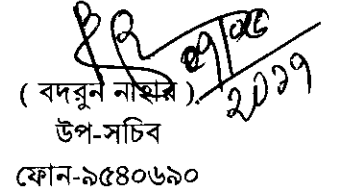 ( বদরুন নাহার )
উপ-সচিব
ফোন-৯৫৪০৬৯০